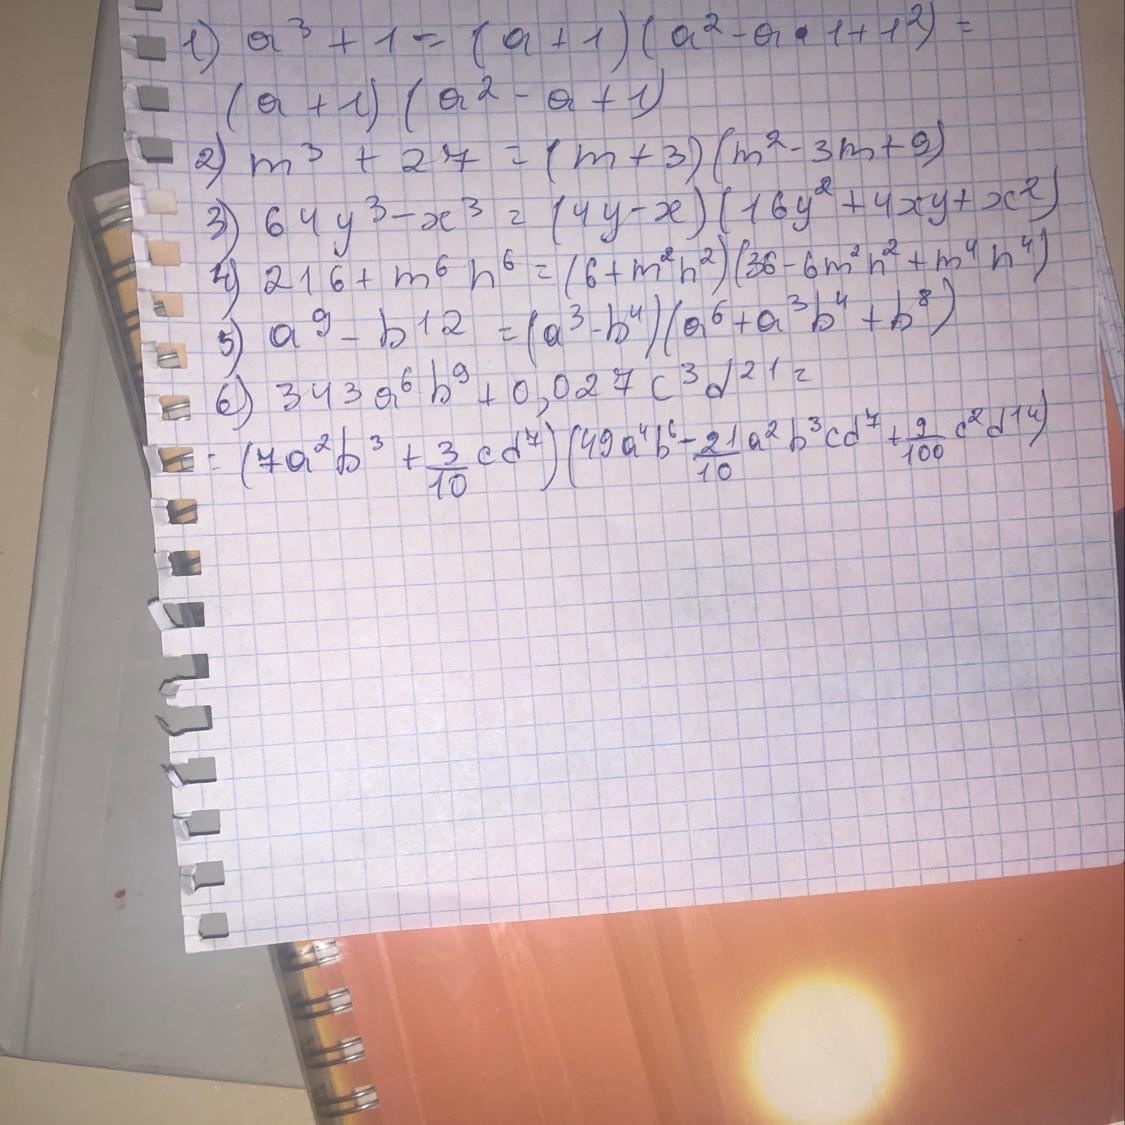 1) a³ + 1 = (a + 1)(a² - a · 1 + 1²) =
(a + 1) (a² - a + 1)
2) m³ + 27 = (m + 3)(m² - 3m + 9)
3) 64y³ - x³ = (4y - x)(16y² + 4xy + x²)
4) 216 + m⁶n⁶ = (6 + m²n²)(36 - 6m²n² + m⁴n⁴)
5) a⁹ - b¹² = (a³ - b⁴)(a⁶ + a³b⁴ + b⁸)
6) 343a⁶b⁹ + 0,027c³d²¹ =
= (7a²b³ + 3/10 cd⁷)(49a⁴b⁶ - 21/10 a²b³cd⁷ + 9/100 c²d¹⁴)